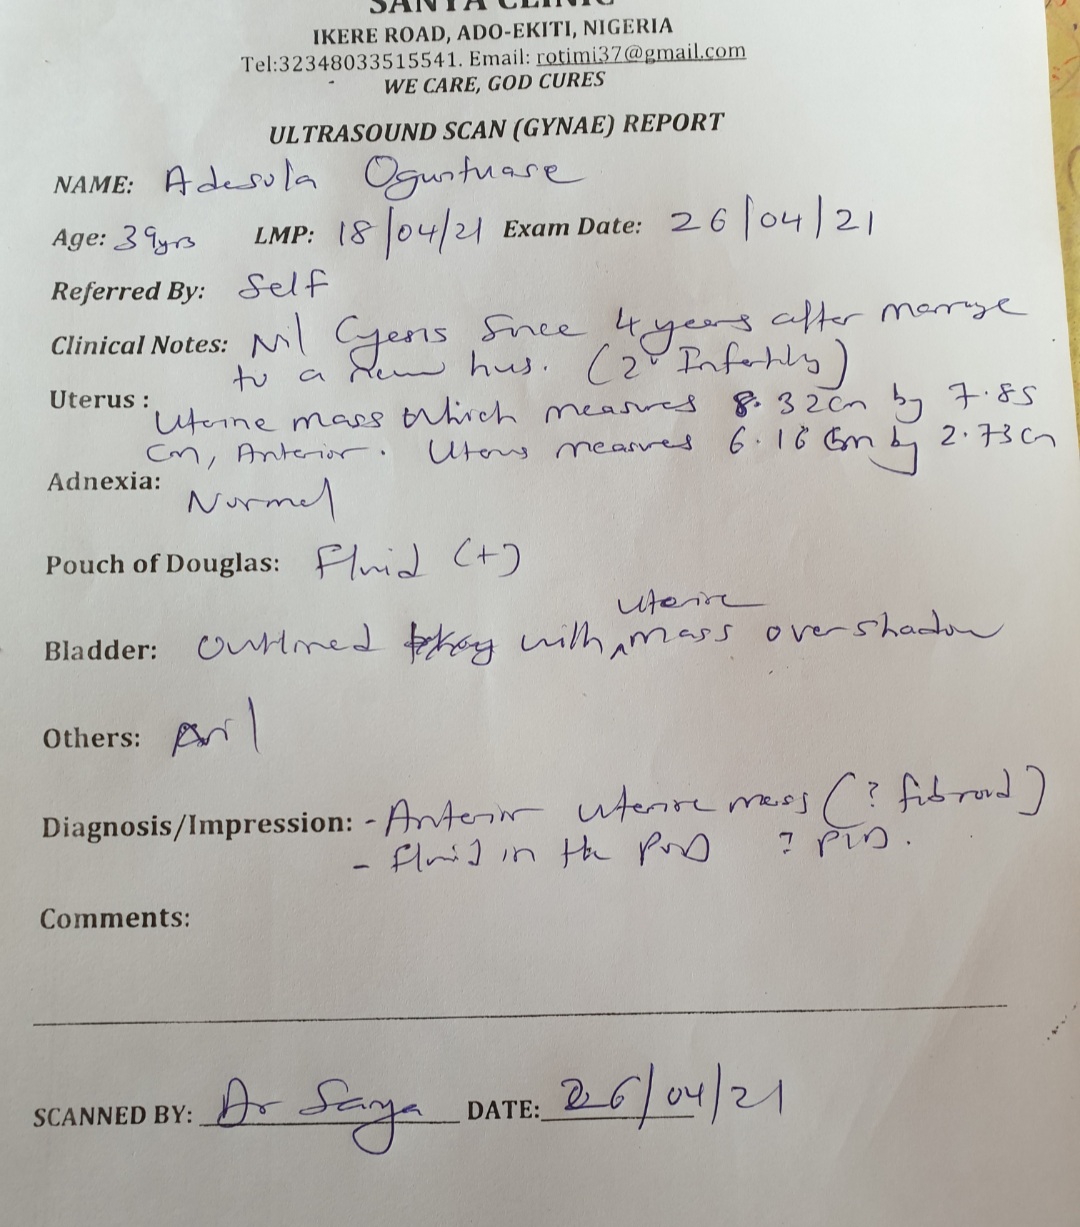 SANYA CLINIC
IKERE ROAD, ADO-EKITI, NIGERIA
Tel:32348033515541. Email: rotimi37@gmail.com
WE CARE, GOD CURES
ULTRASOUND SCAN (GYNAE) REPORT
NAME: Adesola
Age: 39yrs LMP: 18/04/21 Exam Date: 26/04/21
Referred By: Self
Clinical Notes: Nil Cyesis Since 4 years after marriage
to a new hus. (2° Infertility)
Uterus : Uterine mass which measures 8.32cm by 7.85
cm, Anterior. Uterus measures 6.16cm by 2.73cm
Adnexia: Normal
Pouch of Douglas: Fluid (+)
Bladder: Outlined with uterine mass overshadow
Others: Nil
Diagnosis/Impression: - Anterior uterine mass (? fibroid)
- Fluid in the POD ? PID.
Comments:
SCANNED BY: Dr Sanya DATE: 26/04/21